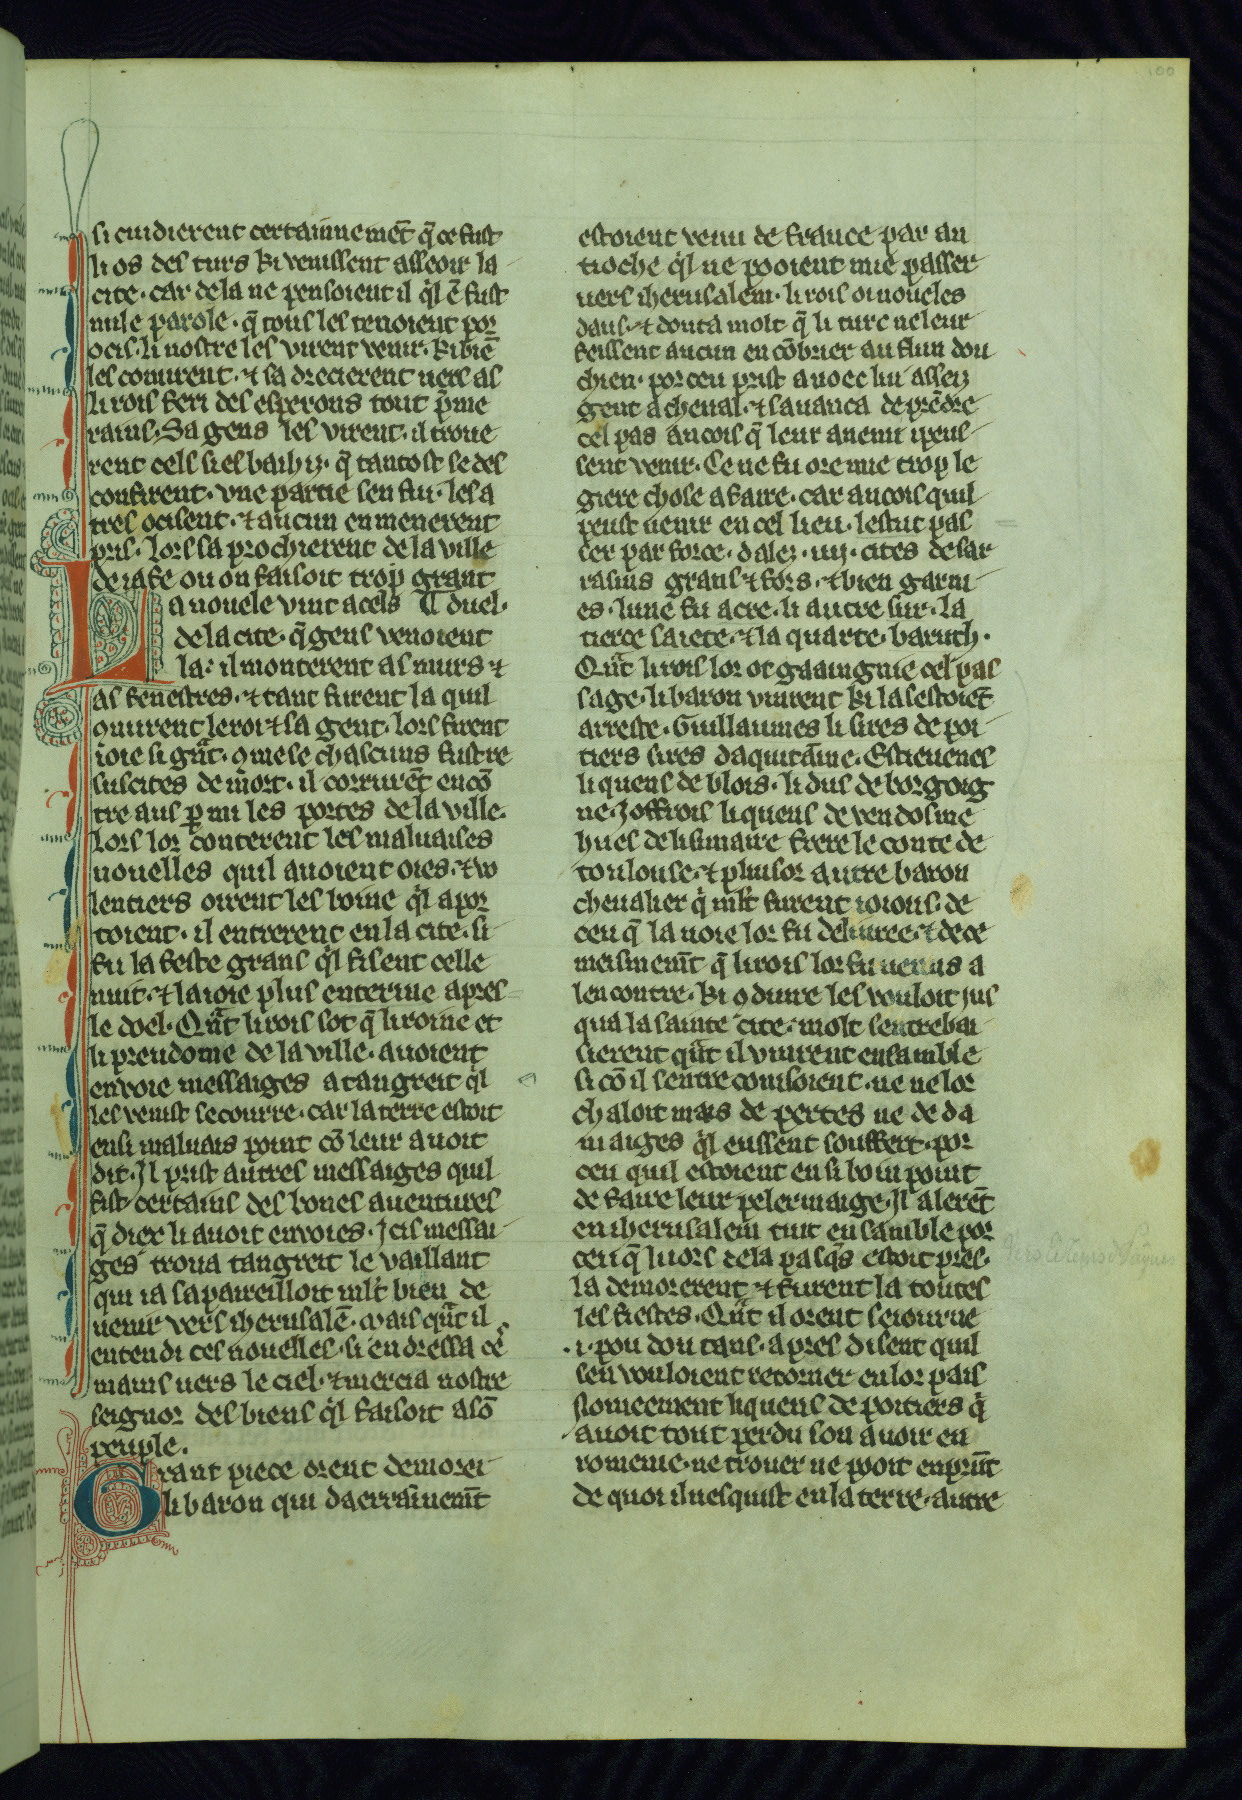 100
si cuidierent certainnemēt q̄ ce fust
li os des turs ki venissent asseoir la
cite · car de la ne pensoient il q̍l ē fust
nule parole · q̄ tous les tenoient por
ocis · li nostre les virent venir · ki biē
les conurent · ⁊ sa drecierent uers as
li rois feri des esperons tout p̄me
rains · Sa gens les virent · il troue
rent cels si esbaihiz · q̄ tantost se des
confirent · vne partie sen fui · les a
tres ocisent · ⁊ aucun en menerent
pris · lors sa prochierent de la ville
de iafe ou on faisoit trop grant
La nouele vint a cels ¶ duel ·
de la cite · q̄ gens venoient
la · il monterent as murs ⁊
as fenestres · ⁊ tant furent la quil
ꝯnurent le roi ⁊ sa gent · lors firent
ioie si grāt · ꝯme se chascuns fust re
suscites de mort · il corrurēt en cō
tre aus p̱ mi les portes de la ville ·
lors lor conterent les maluaises
nouelles quil auoient oies · ⁊ vo
lentiers oirent les boine q̍l a por
toient · il entrerent en la cite · si
fu la feste grans q̍l fisent celle
nuit · ⁊ la ioie plus enterine apres
le doel · Qāt li rois sot q̄ li roine et
li preudome de la ville · auoient
envoie messaiges a tangreit q̍l
les venist secourre · car la terre estoit
ensi maluais point cō leur auoit
dit · Jl prist autres messaiges quil
fist certains des bones auentures
q̄ diex li auoit envoies · Jcis messai
ges troua tangreit le vaillant
qui ia sapareilloit ml̄t bien de
uenir vers iherusalē · mais qāt il
entendi ces nouelles · si en dressa ce
mains uers le ciel · ⁊ mercia nostre
seignor des biens q̍l faisoit a sō
peuple ·
Grant piece orent demorei
li baron qui daerrainnemt̄
estoient venu de france par an
tioche q̍l ne pooient mie passer
uers iherusalem · li rois oi noueles
daus · ⁊ douta molt q̄ li turc ne leur
feissent aucun encōbrier au flun dou
chien · por ceu prist auoec lui assez
gent a cheual · ⁊ sauanca de prēdre
cel pas ancois q̄ leur anemi i peus
sent venir · Ce ne fu ore mie trop le
giere chose a faire · car ancois quil
peust uenir en cel lieu · lestut pas
ser par force · dalez · iiii · cites de sar
rasins grans ⁊ fors · ⁊ bien garni
es · lune fu acre · li autre sur · la
tierce saiete · ⁊ la quarte · baruth ·
Qāt li rois lor ot gaaingnie cel pas
sage · li baron vinrent ki la sestoiēt
arreste · Guillaumes li sires de poi
tiers sires daquitaine · Estieuenes
li quens de blois · li dus de borgoig
ne · Joffrois li quens de vendosme
hues de lisinaire frere le conte de
toulouse · ⁊ pluisor autre baron
cheualier q̍ ml̄t furent ioious · de
ceu q̄ la uoie lor fu deliuree · ⁊ de ce
meismemt̄ q̄ li rois lor fu uenus a
lencontre · ki ꝯduire les vouloit jus
qua la sainte cite · molt sentrebai
sierent qāt il vinrent ensamble
si cō il sentre conisoient · ne ne lor
chaloit mais de pertes ne de da
maiges q̍l eussent souffert · por
ceu quil estoient en si boin point
de faire leur pelerinaige · Jl alerēt
en iherusalem tuit ensamble por
ceu q̄ li iors de la pasq̄s estoit pres ·
la demorerent ⁊ furent la toutes
les fiestes · Qāt il orent seiourne
· i · pou dou tans · apres disent quil
sen vouloient retorner en lor pais
nomeement li quens de poitiers q̍
auoit tout perdu son auoir en
romenie · ne trouer ne pooit enprūt
de quoi il uesquist en la terre · autre